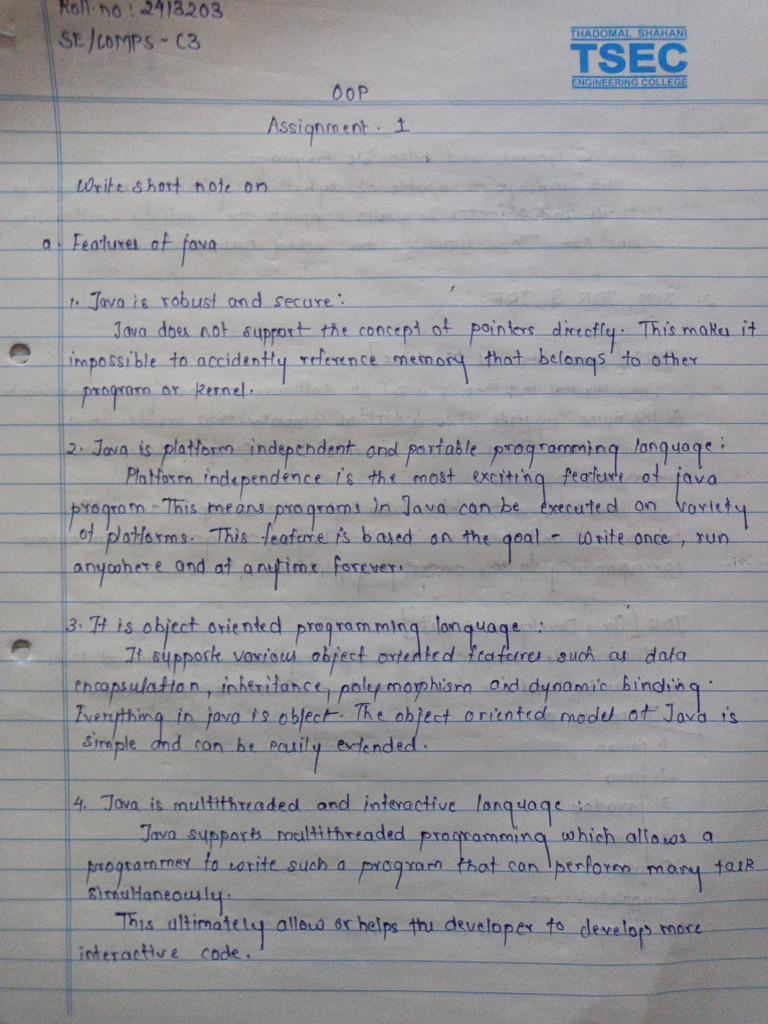 Roll.no : 2413203
SE/COMPS - C3
THADOMAL SHAHANI
TSEC
ENGINEERING COLLEGE
OOP
Assignment. 1
Write short note on
a. Features of java
1. Java is robust and secure:
Java does not support the concept of pointers directly. This makes it
impossible to accidently reference memory that belongs to other
program or kernel.
2. Java is platform independent and portable programming language:
Platform independence is the most exciting feature of java
program - This means programs in Java can be executed on variety
of platforms. This feature is based on the goal - write once, run
anywhere and at anytime, forever.
3. It is object oriented programming language:
It supports various object oriented features such as data
encapsulation, inheritance, polymorphism and dynamic binding.
Everything in java is object. The object oriented model of Java is
simple and can be easily extended.
4. Java is multithreaded and interactive language:
Java supports multithreaded programming which allows a
programmer to write such a program that can perform many task
simultaneously.
This ultimately allow or helps the developer to develops more
interactive code.